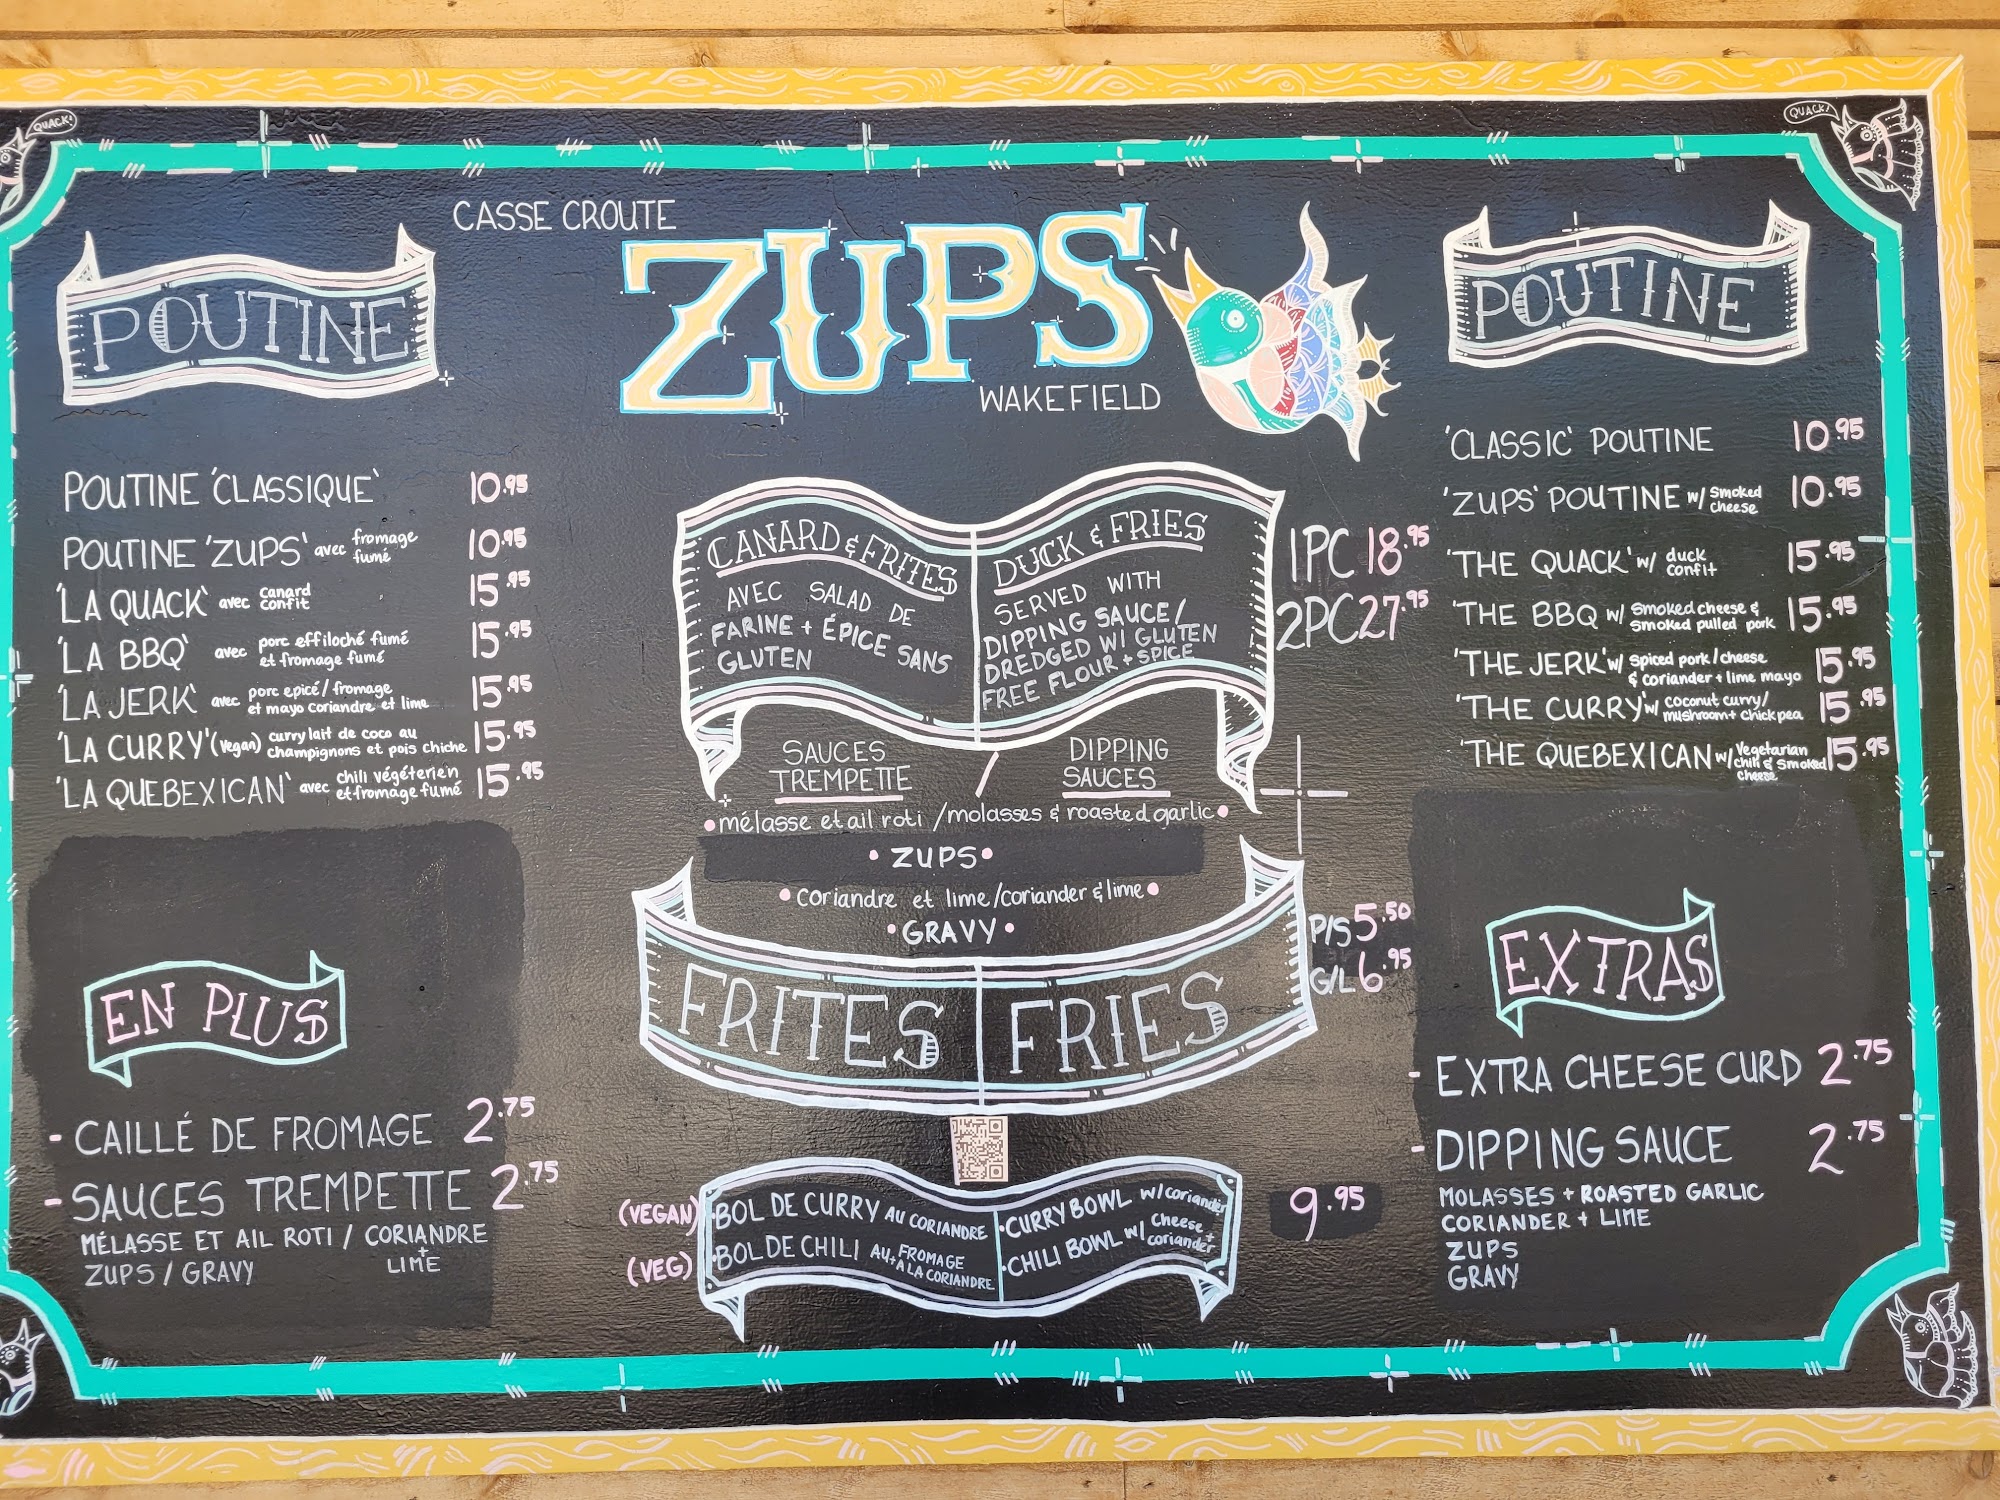 QUACK!
QUACK!
CASSE CROUTE
ZUPS
WAKEFIELD
POUTINE
POUTINE 'CLASSIQUE' 10.95
POUTINE 'ZUPS' avec fromage fumé 10.95
'LA QUACK' avec canard confit 15.95
'LA BBQ' avec porc effiloché fumé et fromage fumé 15.95
'LA JERK' avec porc epicé/fromage et mayo coriandre et lime 15.95
'LA CURRY' (vegan) curry lait de coco au champignons et pois chiche 15.95
'LA QUEBEXICAN' avec chili végéterien et fromage fumé 15.95
EN PLUS
- CAILLÉ DE FROMAGE 2.75
- SAUCES TREMPETTE 2.75
MÉLASSE ET AIL ROTI / CORIANDRE + LIME
ZUPS / GRAVY
CANARD & FRITES
AVEC SALAD DE
FARINE + ÉPICE SANS
GLUTEN
DUCK & FRIES
SERVED WITH
DIPPING SAUCE/
DREDGED W/ GLUTEN
FREE FLOUR + SPICE
1PC 18.95
2PC 27.95
SAUCES TREMPETTE / DIPPING SAUCES
• mélasse et ail roti / molasses & roasted garlic •
• ZUPS •
• coriandre et lime / coriander & lime •
• GRAVY •
FRITES FRIES
P/S 5.50
G/L 6.95
(VEGAN) • BOL DE CURRY AU CORIANDRE
(VEG) • BOL DE CHILI AU FROMAGE + A LA CORIANDRE
• CURRY BOWL w/ coriander
• CHILI BOWL w/ cheese + coriander
9.95
POUTINE
'CLASSIC' POUTINE 10.95
'ZUPS' POUTINE w/ smoked cheese 10.95
'THE QUACK' w/ duck confit 15.95
'THE BBQ w/ smoked cheese & smoked pulled pork 15.95
'THE JERK' w/ spiced pork/cheese & coriander + lime mayo 15.95
'THE CURRY' w/ coconut curry/ mushroom + chickpea 15.95
'THE QUEBEXICAN w/ vegetarian chili & smoked cheese 15.95
EXTRAS
- EXTRA CHEESE CURD 2.75
- DIPPING SAUCE 2.75
MOLASSES + ROASTED GARLIC
CORIANDER + LIME
ZUPS
GRAVY